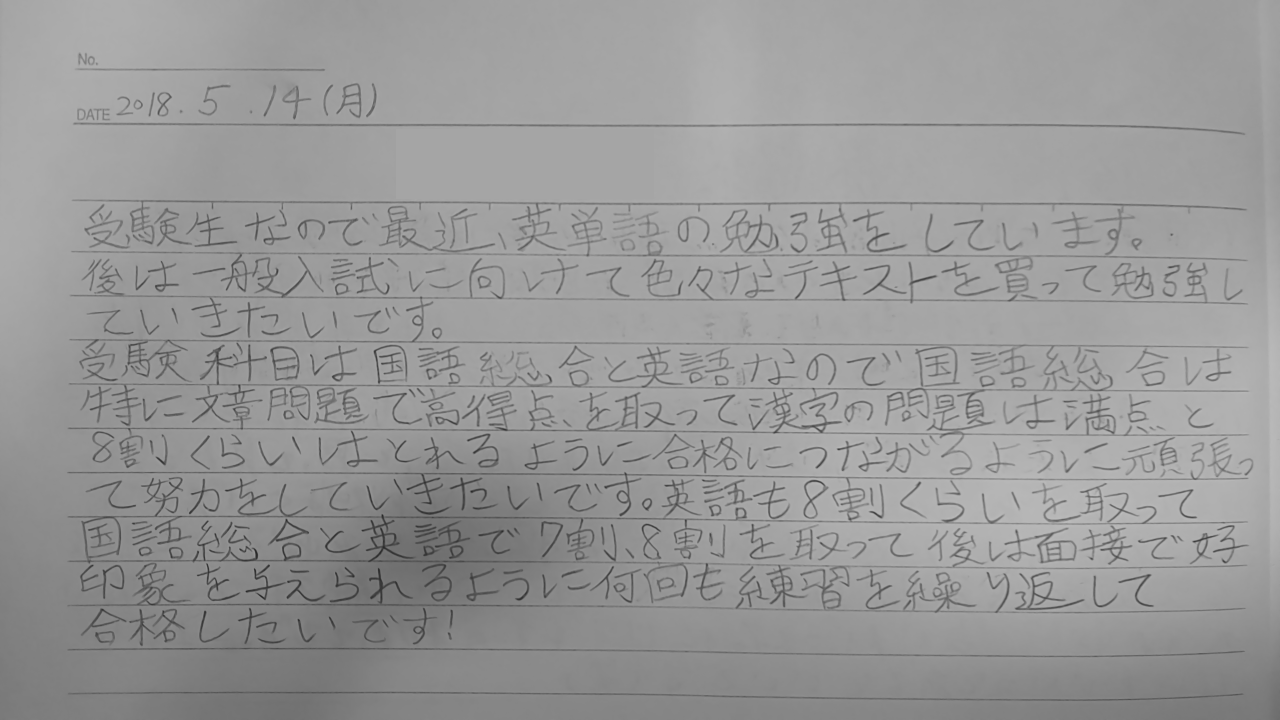 No.
DATE 2018.5.14(月)
受験生なので最近、英単語の勉強をしています。
後は一般入試に向けて色々なテキストを買って勉強し
ていきたいです。
受験科目は国語総合と英語なので国語総合は
特に文章問題で高得点を取って漢字の問題は満点と
8割くらいはとれるように合格につながるように頑張っ
て努力をしていきたいです。英語も8割くらいを取って
国語総合と英語で7割、8割を取って後は面接で好
印象を与えられるように何回も練習を繰り返して
合格したいです!